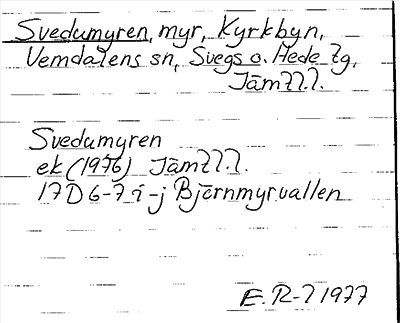 Svedumyren, myr, Kyrkbyn,
Vemdalens sn, Svegs o. Hede tg,
Jämtl.l.
Svedumyren
ek (1976) Jämtl.l.
17D 6-7 i-j Björnmyrvallen
E.R-l 1977